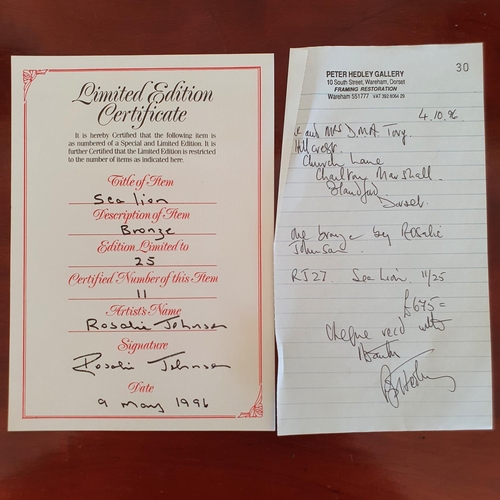 Limited Edition
Certificate
It is hereby Certified that the following item is
as numbered of a Special and Limited Edition. It is
further Certified that the Limited Edition is restricted
to the number of items as indicated here.
Title of Item
Sea lion
Description of Item
Bronze
Edition Limited to
25
Certified Number of this Item
11
Artist's Name
Rosalie Johnson
Signature
Rosalie Johnson
Date
9 May 1996
30
PETER HEDLEY GALLERY
10 South Street, Wareham, Dorset
FRAMING RESTORATION
Wareham 551777 VAT 392 8064 29
4.10.96
and Mrs D.M.A
Hillcrest
Church Lane
Charlton Marshall
Blandford
Dorset
One bronze by Rosalie
Johnson
RJ27 Sea Lion 11/25
£675=
Cheque recd with
thanks